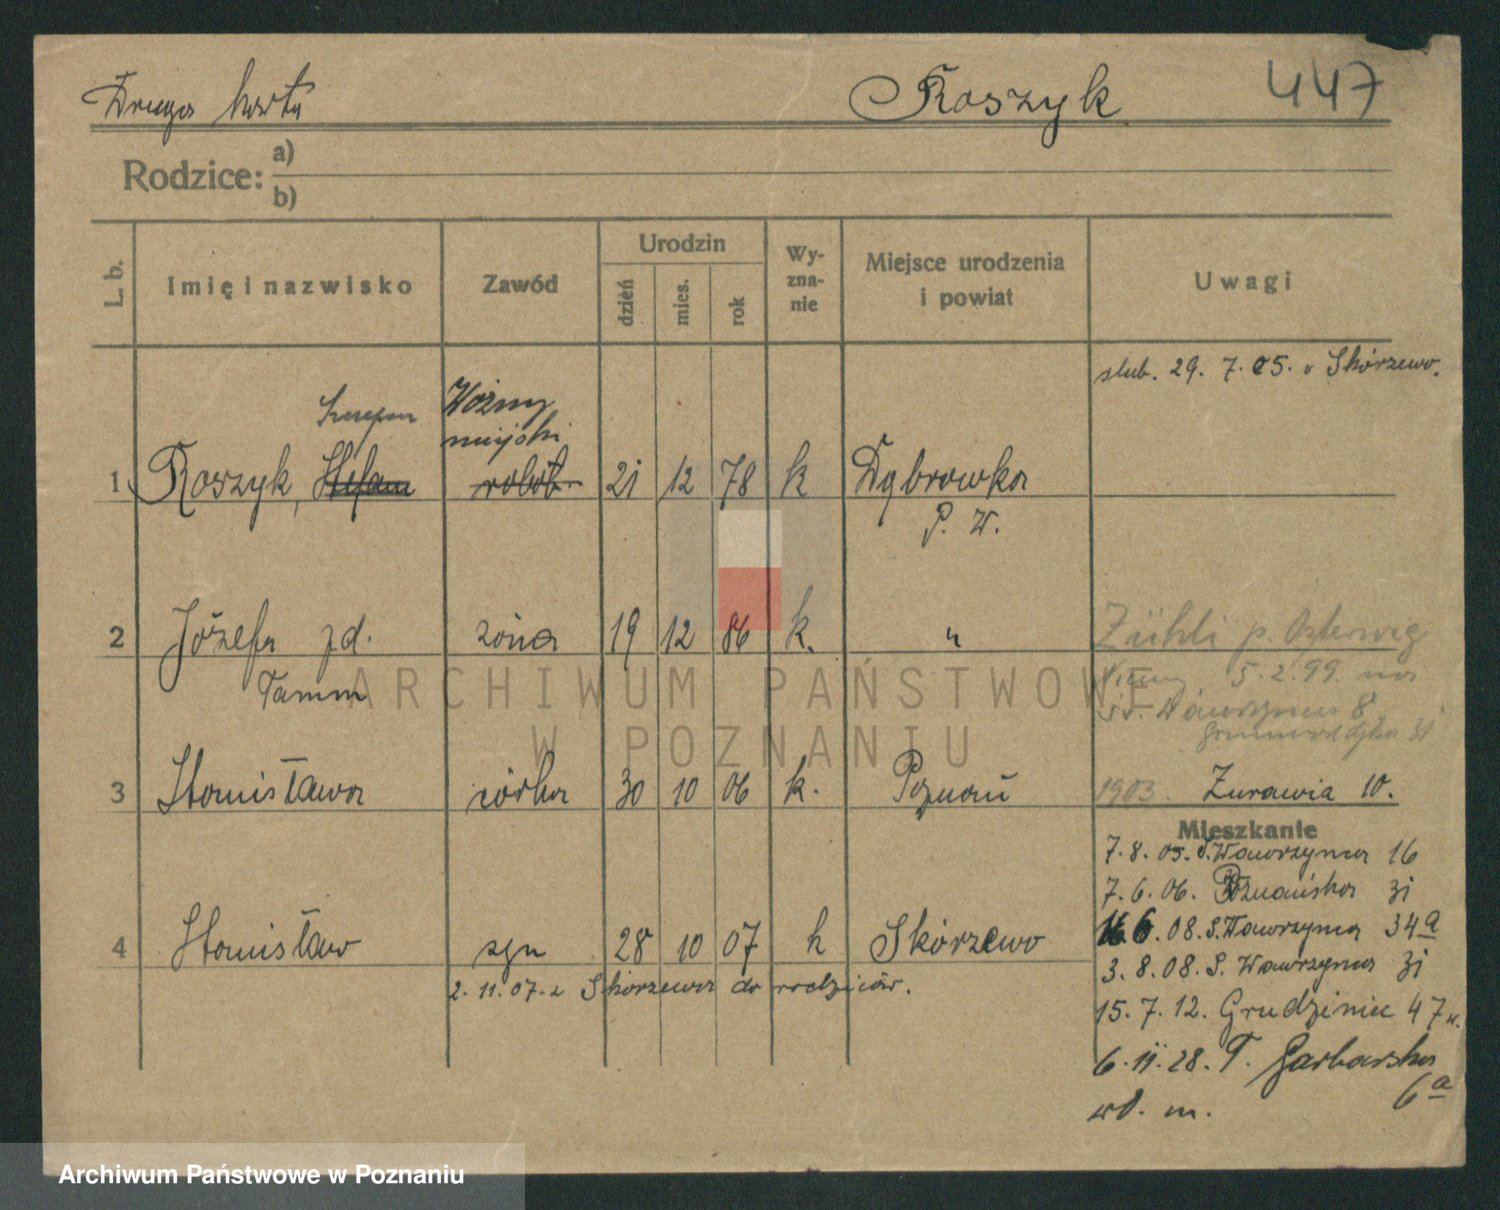 Druga karta
Roszyk
447
Rodzice:
a)
b)
L. b.
Imię i nazwisko
Zawód
Urodzin
dzień
mies.
rok
Wy-
zna-
nie
Miejsce urodzenia
i powiat
Uwagi
slub. 29. 7. 05. v Skórzewo.
Szczepan
Woźny
miejski
1 Roszyk, Stefan robot. 21 12 78 k Dąbrowka
P. W.
2 Józefa zd. żona 19 12 86 k. "
Tamm
Zühli p. Osterwig
5. 2. 99. na
Św. Wawrzyńca 8
31
3 Stanisława córka 30 10 06 k. Poznań
1903. Żurawia 10.
Mieszkanie
7. 8. 05. S. Wawrzyńca 16
7. 6. 06. Poznańska 31
16 6. 08. S. Wawrzyńca 34a
4 Stanisław syn 28 10 07 k Skórzewo
2. 11. 07. z Skórzewa do rodziców.
3. 8. 08. S. Wawrzyńca 31
15. 7. 12. Grudzieniec 47 w.
6. 11. 28. T. Garbarska
6a
wł. m.
ARCHIWUM PAŃSTWOWE
W POZNANIU
Archiwum Państwowe w Poznaniu